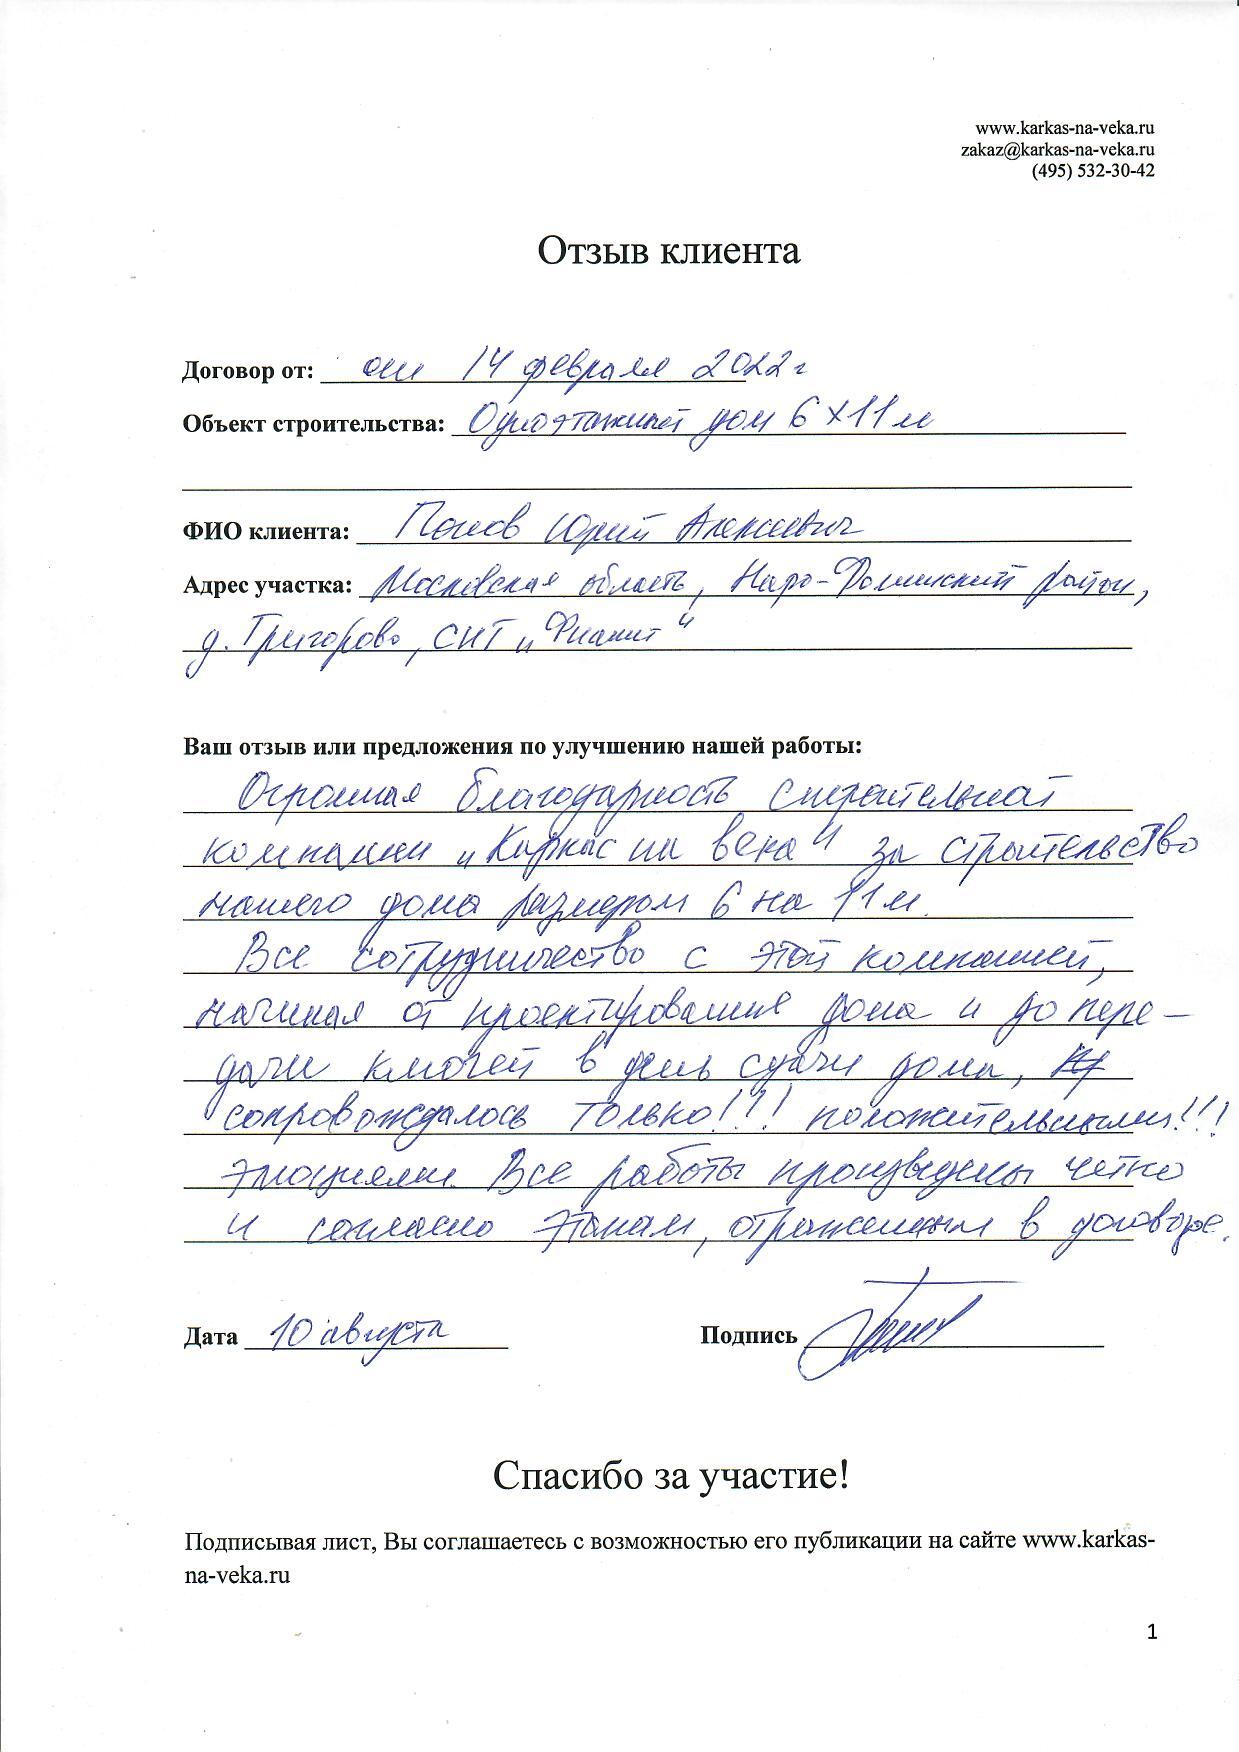 www.karkas-na-veka.ru
zakaz@karkas-na-veka.ru
(495) 532-30-42
Отзыв клиента
Договор от: от 14 февраля 2022 г
Объект строительства: Одноэтажный дом 6 х 11 м
ФИО клиента: Попов Юрий Алексеевич
Адрес участка: Московская область, Наро-Фоминский район,
д. Григорово, СНТ „Фианит"
Ваш отзыв или предложения по улучшению нашей работы:
Огромная благодарность строительной
компании „Каркас на века" за строительство
нашего дома размером 6 на 11 м.
Все сотрудничество с этой компанией,
начиная от проектирования дома и до пере-
дачи ключей в день сдачи дома,
сопровождалось только!!! положительными!!!
эмоциями. Все работы произведены четко
и согласно этапам, отраженным в договоре.
Дата 10 августа Подпись
Спасибо за участие!
Подписывая лист, Вы соглашаетесь с возможностью его публикации на сайте www.karkas-
na-veka.ru
1